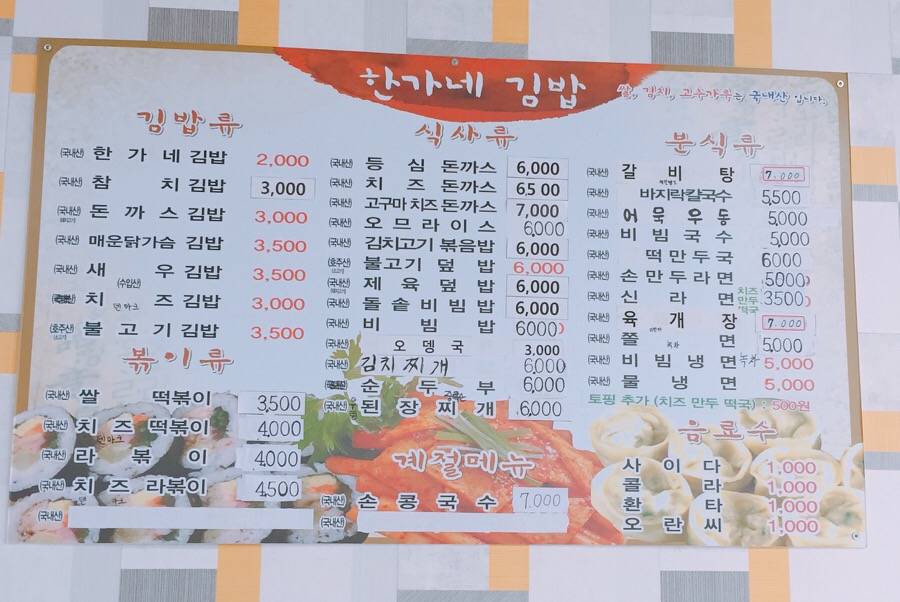 한가네 김밥
쌀, 김치, 고추가루는 국내산 입니다.
김밥류
(국내산) 한가네김밥 2,000
(국내산) 참치김밥 3,000
(국내산) 돈까스김밥 3,000
(국내산) 매운닭가슴 김밥 3,500
(국내산) 새우김밥 3,500
(수입산)
치즈김밥 3,000
덴마크
(호주산) 불고기김밥 3,500
볶이류
(국내산) 쌀떡볶이 3,500
(국내산) 치즈떡볶이 4,000
덴마크
(국내산) 라볶이 4,000
(국내산) 치즈라볶이 4,500
덴마크
(국내산)
식사류
(국내산) 등심돈까스 6,000
(국내산) 치즈돈까스 6500
(국내산) 고구마치즈돈까스 7,000
(국내산) 오므라이스 6,000
(국내산) 김치고기볶음밥 6,000
(호주산) 불고기덮밥 6,000
(국내산) 제육덮밥 6,000
(국내산) 돌솥비빔밥 6,000
(국내산) 비빔밥 6000
(국내산) 오뎅국 3,000
(국내산) 김치찌개 6,000
(국내산) 순두부 6,000
(국내산) 된장찌개 6,000
계절메뉴
(국내산) 손콩국수 7,000
(국내산)
분식류
(국내산) 갈비탕 7.000
(국내산) 바지락칼국수 5,500
(국내산) 어묵우동 5,000
(국내산) 비빔국수 5,000
(국내산) 떡만두국 6000
(국내산) 손만두라면 5000
(국내산) 신라면 치즈 만두 떡국 3500
(국내산) 육개장 7.000
(국내산) 쫄면 5,000
(국내산) 비빔냉면 녹차 5,000
(국내산) 물냉면 5,000
토핑 추가 (치즈 만두 떡국) : 500원
음료수
사이다 1,000
콜라 1,000
환타 1,000
오란씨 1,000